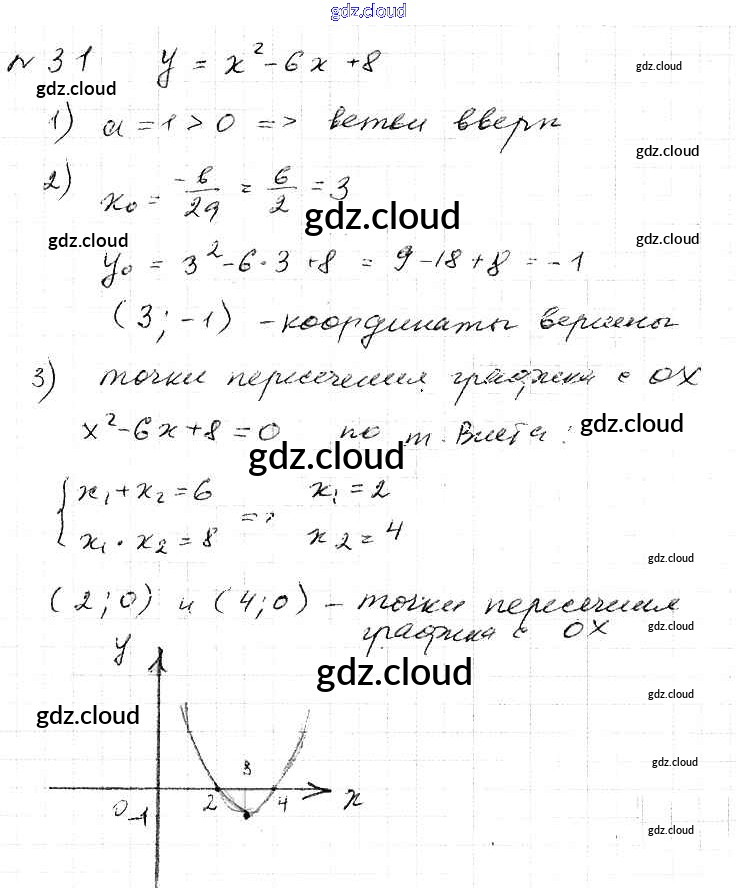 gdz.cloud
№ 31 y = x² - 6x + 8
gdz.cloud
gdz.cloud
1) a = 1 > 0 => ветви вверх
gdz.cloud
2) x₀ = -b/2a = 6/2 = 3
gdz.cloud
gdz.cloud
gdz.cloud
y₀ = 3² - 6·3 + 8 = 9 - 18 + 8 = -1
(3; -1) - координаты вершины
3) точки пересечения графика с OX
x² - 6x + 8 = 0 по т. Виета:
gdz.cloud
gdz.cloud
{ x₁ + x₂ = 6 x₁ = 2
x₁ · x₂ = 8 => x₂ = 4
gdz.cloud
(2; 0) и (4; 0) - точки пересечения
графика с OX
gdz.cloud
y
gdz.cloud
gdz.cloud
gdz.cloud
gdz.cloud
3
0 -1 2 4 x
gdz.cloud